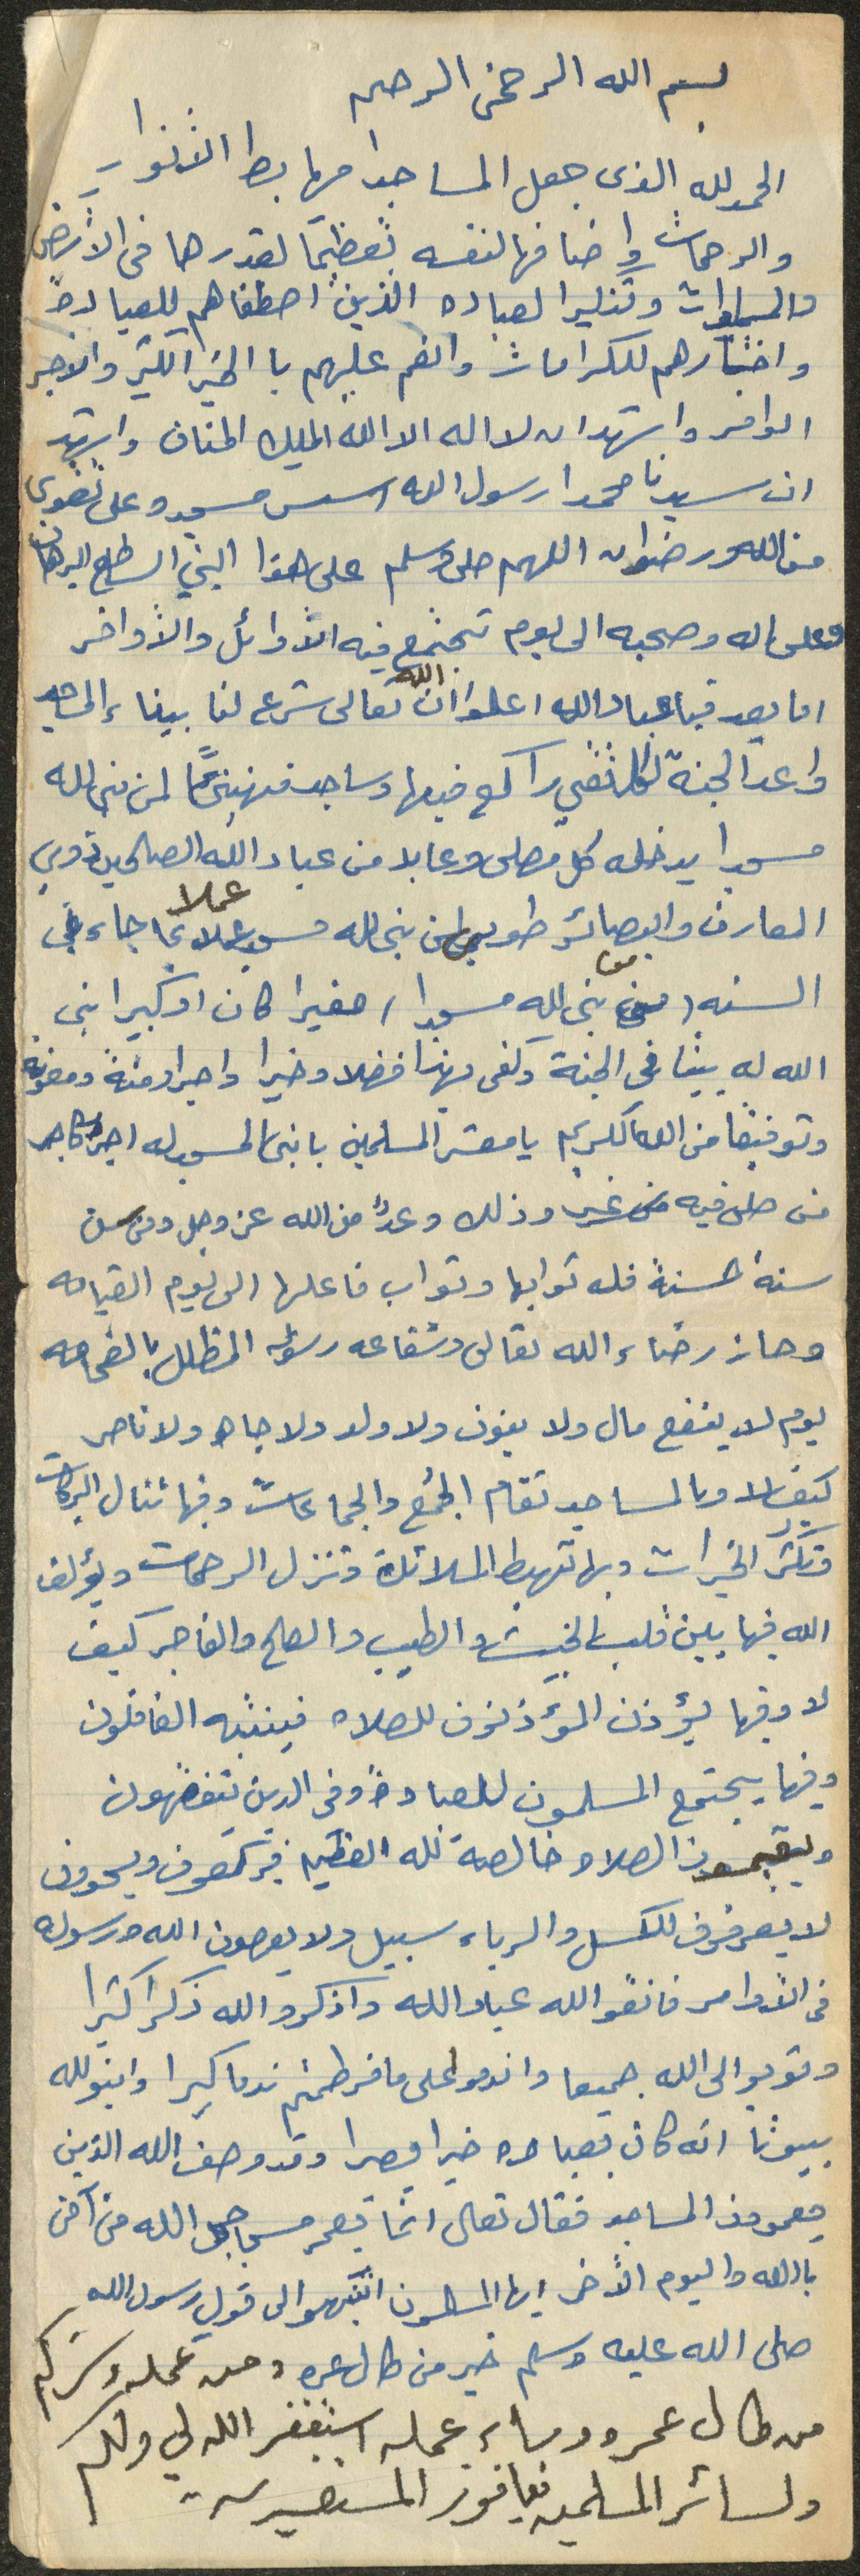 بسم الله الرحمن الرحيم
الحمد لله الذى جعل المساجد مهابط الأنوار
والرحمات واضافها لنفسه تعظيمًا لقدرها فى الأرض
والسماوات وتذكيرا لعباده الذين اصطفاهم للعبادة
واختارهم للكرامات وانعم عليهم با الخير الكثير والأجر
الوافر واشهد ان لا اله الا الله المليك المنان واشهد
ان سيدنا محمدا رسول الله اسس مسجده على تقوى
من الله ورضوان اللهم صلى وسلم على هذا النبي الساطع البرهان
وعلى اله وصحبه الى يوم تجتمع فيه الأوائل والأواخر
اما بعد فيا عباد الله اعلموا ان الله تعالى شرع لنا ببناء المساجد
واعد الجنة لكل تقي راكع فيها وساجد فهنيئًا لمن بنى لله
مسجدا يدخله كل مصلى وعابد من عباد الله الصالحين ذوي
المعارف والبصائر طوبى لمن بنى لله مسجد عملا بما جاء في
السنه (من بنى لله مسجدا) صغيرا كان او كبيرا بنى
الله له بيتا فى الجنة وكفى بهذا فضلا وخيرا واجرا ومنة ومغفرة
وتوفيقا من الله الكريم يا معشر المسلمين بانى المسجد له اجر كأجر
من صلى فيه وذلك وعدٌ من الله عز وجل ومن سن
سنة حسنة فله ثوابها وثواب فاعلها الى يوم القيامه
وحاز رضاء الله تعالى وشفاعه رسوله المظلل بالغمامه
يوم لا ينفع مال ولا بنون ولا ولد ولا جاه ولا ناصر
كيف لا وبالمساجد تقام الجمع والجماعات وفيها تنال البركات
وتكثر الخيرات وبها تهبط الملائكة وتنزل الرحمات ويؤلف
الله فيها بين قلب الخبيث والطيب والصالح والفاجر كيف
لا وفيها يؤذن المؤذنون للصلاه فينتبه الغافلون
وفيها يجتمع المسلمون للعبادة وفى الدين يتفقهون
ويقيمون الصلاه خالصة لله العظيم فيركعون ويسجدون
لا يعرفون للكسل والرياء سبيل ولا يعصون الله ورسوله
فى الأوامر فاتقو الله عباد الله واذكرو الله ذكرا كثيرا
وتوبو الى الله جميعا واندموا على ما فرطتم ندما كبيرا وابنو لله
بيوتا انه كان بعباده خبيرا بصيرا وقد وصف الله الذين
يعمرون المساجد فقال تعالى انما يعمر مساجد الله من آمن
بالله واليوم الأخر ايها المسلمون انتبهو الى قول رسول الله
صلى الله عليه وسلم خير من طال عمره وحسن عمله وشركم
من طال عمره وساء عمله استغفر الله لي ولكم
ولسائر المسلمين فيا فوز المستغفرين